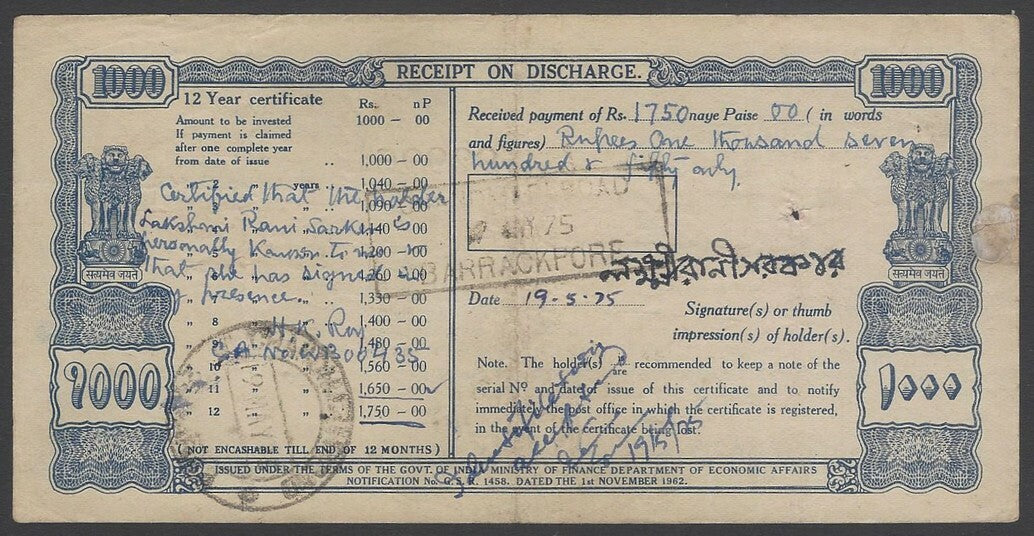 1000 RECEIPT ON DISCHARGE. 1000
12 Year certificate Rs. nP
Amount to be invested 1000 — 00
If payment is claimed
after one complete year
from date of issue .. 1,000 — 00
2 " years 1,040 — 00
1,090 — 00
1,140
1,200
1,260 — 00
1,330 — 00
" 8 " 1,400 — 00
1,480 — 00
10 1,560 — 00
" 11 " 1,650 — 00
" 12 " 1,750 — 00
(NOT ENCASHABLE TILL END OF 12 MONTHS)
Certified that the holder
Lakshmi Rani Sarkar is
personally known to me &
that she has signed in
my presence.
H.K. Roy
Received payment of Rs. 1750 naye Paise 00 (in words
and figures) Rupees One thousand seven
hundred & fifty only.
MY 75
BARRACKPORE
লক্ষ্মীরানী সরকার
Date 19-5-75
Signature(s) or thumb
impression(s) of holder(s).
Note. The holder(s) is/are recommended to keep a note of the
serial No and date of issue of this certificate and to notify
immediately the post office in which the certificate is registered,
in the event of the certificate being lost.
19/5/75
सत्यमेव जयते
सत्यमेव जयते
१000
১০০০
ISSUED UNDER THE TERMS OF THE GOVT. OF INDIA MINISTRY OF FINANCE DEPARTMENT OF ECONOMIC AFFAIRS
NOTIFICATION No. G.S.R. 1458. DATED THE 1st NOVEMBER 1962.